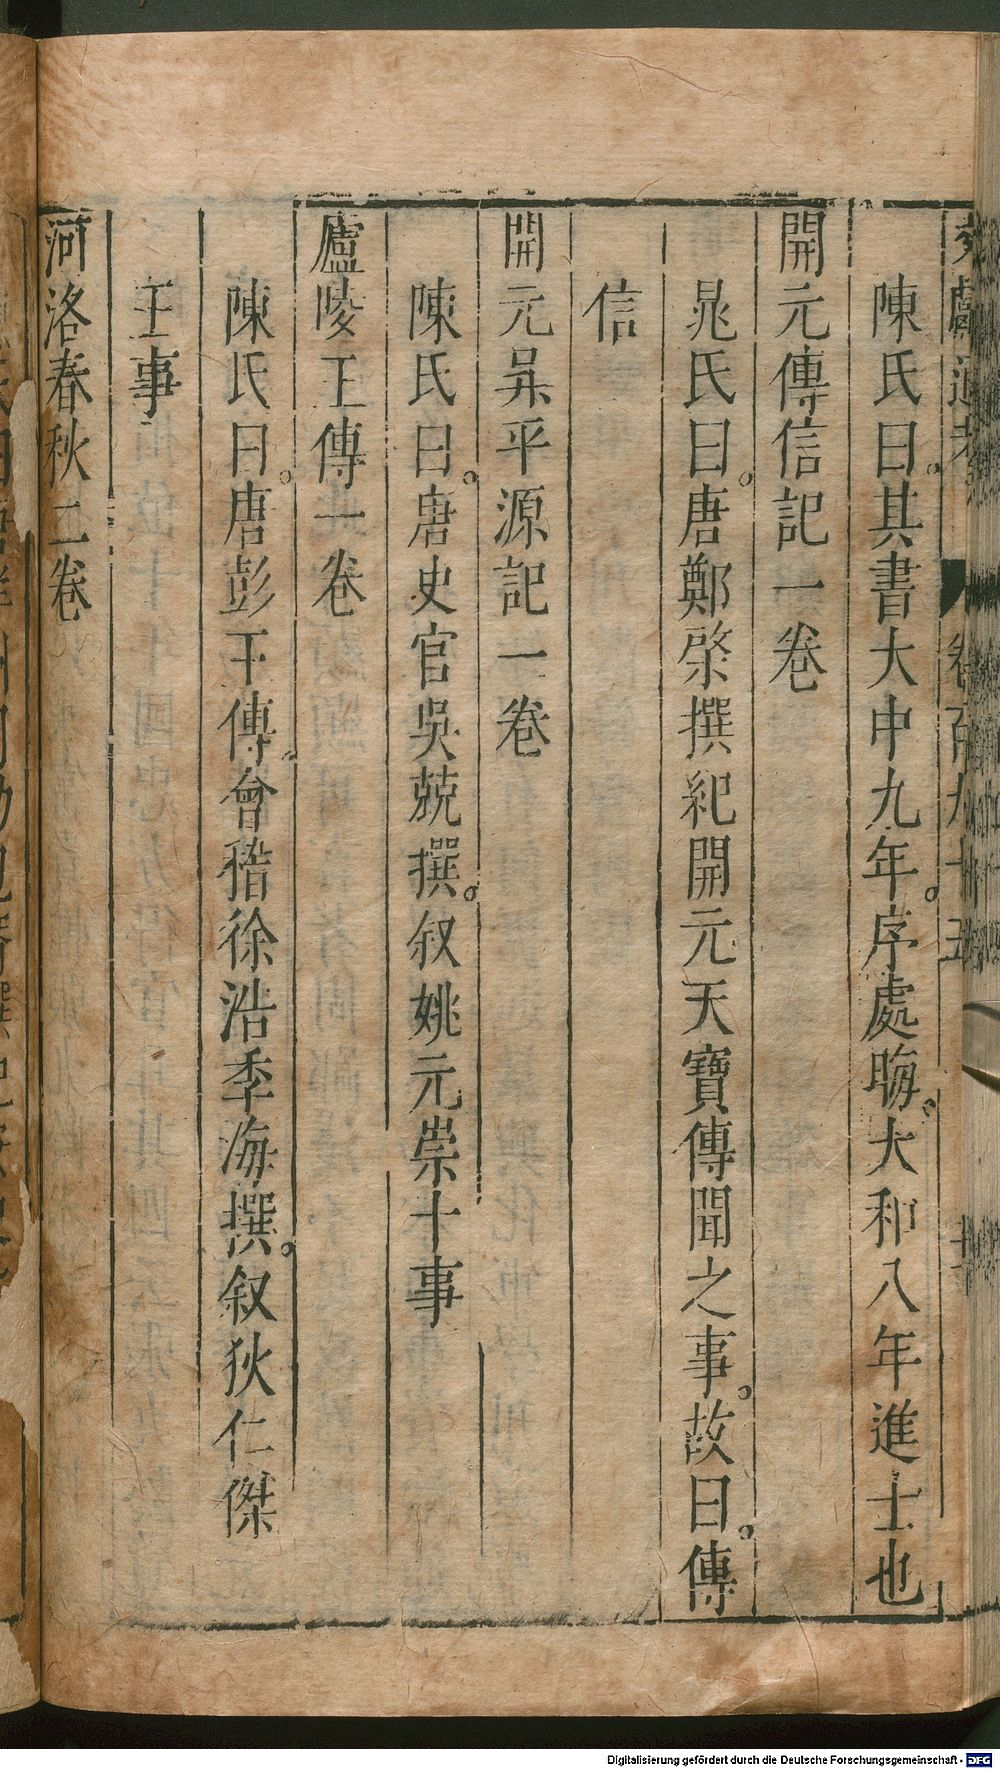 文獻通考 卷百九十五
陳氏曰其書大中九年序處晦大和八年進士也
開元傳信記一卷
晁氏曰唐鄭棨撰紀開元天寶傳聞之事故曰傳
信
開元昇平源記一卷
陳氏曰唐史官吳兢撰叙姚元崇十事
廬陵王傳一卷
陳氏曰唐彭王傳會稽徐浩季海撰叙狄仁傑
王事
河洛春秋二卷
Digitalisierung gefördert durch die Deutsche Forschungsgemeinschaft - DFG